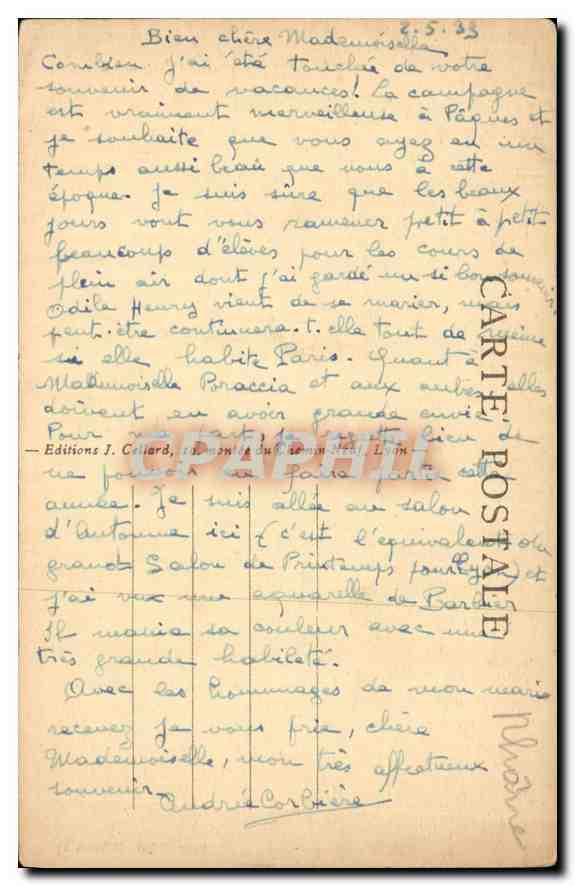 2.5.33
Bien chère Mademoiselle
Combien j'ai été touchée de votre
souvenir de vacances! La campagne
est vraiment merveilleuse à Pâques et
je souhaite que vous ayez eu un
temps aussi beau que nous à cette
époque. Je suis sûre que les beaux
jours vont vous ramener petit à petit
beaucoup d'élèves pour les cours de
plein air dont j'ai gardé un si bon souvenir.
Odile Henry vient de se marier, mais
peut-être continuera-t-elle tout de même
si elle habite Paris. Quant à
Mademoiselle Poraccia et aux autres elles
doivent en avoir grande envie
Pour ma part, je regrette bien de
ne pouvoir en faire partie cette
année. Je suis allée au salon
d'Automne ici (c'est l'équivalent du
grand Salon de Printemps pour Lyon) et
j'ai vu une aquarelle de Barbier
Il mania sa couleur avec une
très grande habileté.
Avec les hommages de mon mari
recevez je vous prie, chère
Mademoiselle, mon très affectueux
souvenir.
Andrée Corbière
CARTE POSTALE
— Editions J. Cellard, 10, montée du Chemin-Neuf, Lyon —
CPAPHIL
Rhône